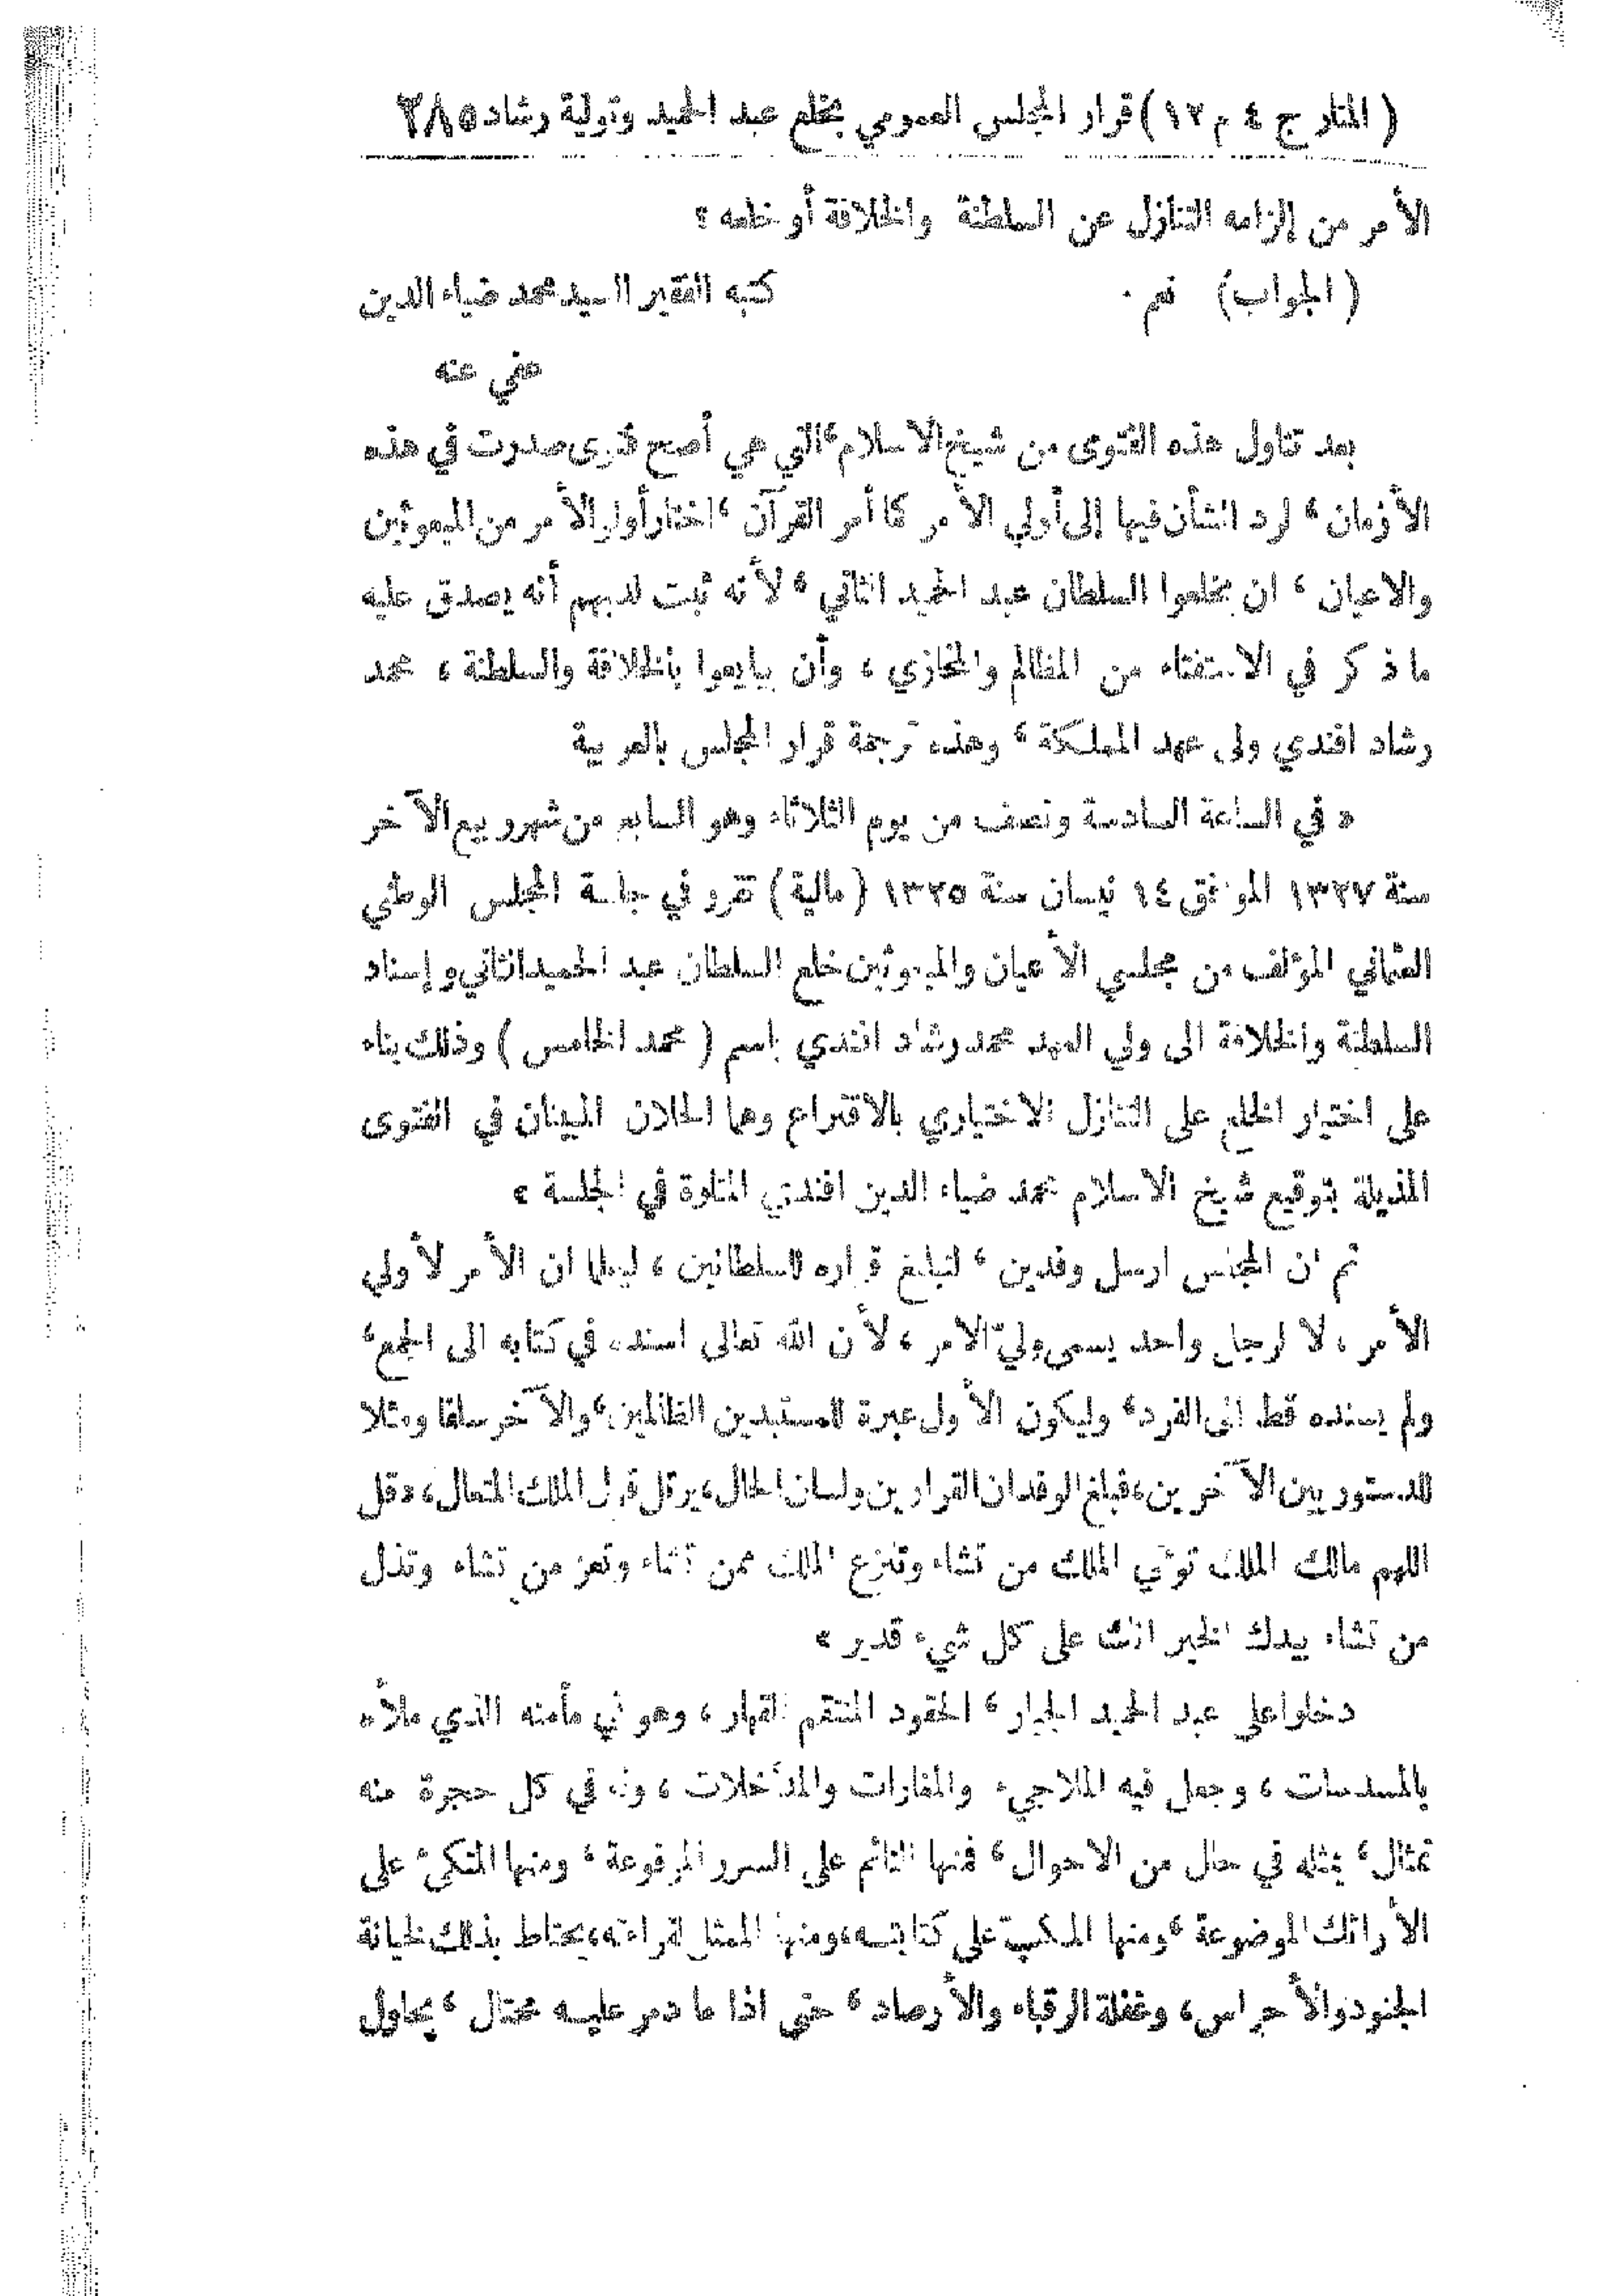 ( المنار ج ٤ م ١٢ ) قرار المجلس العمومي بخلع عبد الحميد وتولية رشاد ٢٨٥
الأمر من إلزامه التنازل عن السلطنة والخلافة أو خلعه ؟
( الجواب ) نعم . كتبه الفقير السيد محمد ضياء الدين
عفي عنه
بعد تناول هذه الفتوى من شيخ الاسلام ، التي هي أصح فتوى صدرت في هذه
الأزمان ، لرد الشأن فيها إلى أولي الأمر كما أمر القرآن ، اختار أولو الأمر من المبعوثين
والاعيان ، ان يخلعوا السلطان عبد الحميد الثاني ، لأنه ثبت لديهم أنه يصدق عليه
ما ذكر في الاستفتاء من المظالم والمخازي ، وأن يبايعوا بالخلافة والسلطنة ، محمد
رشاد افندي ولي عهد المملكة ، وهذه ترجمة قرار المجلس بالعربية
« في الساعة السادسة ونصف من يوم الثلاثاء وهو السابع من شهر ربيع الآخر
سنة ١٣٢٧ الموافق ١٤ نيسان سنة ١٣٢٥ ( مالية ) تقرر في جلسة المجلس الوطني
العثماني المؤلف من مجلسي الأعيان والمبعوثين خلع السلطان عبد الحميد الثاني وإسناد
السلطنة والخلافة الى ولي العهد محمد رشاد افندي باسم ( محمد الخامس ) وذلك بناء
على اختيار الخلع على التنازل الاختياري بالاقتراع وهما الحلان المبينان في الفتوى
المذيلة بتوقيع شيخ الاسلام محمد ضياء الدين افندي المتلوة في الجلسة »
ثم ان المجلس ارسل وفدين ، لتبليغ قراره للسلطانين ، ليعلما ان الأمر لأولي
الأمر ، لا لرجل واحد يسمى وليّ الامر ، لأن الله تعالى اسنده في كتابه الى الجمع ،
ولم يسنده قط الى الفرد ، وليكون الأول عبرة للمستبدين الظالمين ، والآخر سلفا ومثلا
للدستوريين الآخرين ، فبلغ الوفدان القرارين ولسان الحال ، يرتل قول الملك المتعال ، « قل
اللهم مالك الملك تؤتي الملك من تشاء وتنزع الملك ممن تشاء وتعز من تشاء وتذل
من تشاء بيدك الخير انك على كل شيء قدير »
دخلوا على عبد الحميد الجبار ، الحقود المنتقم القهار ، وهو في مأمنه الذي ملأه
بالمسدسات ، وجعل فيه الملاجيء والمغارات والمدخلات ، وله في كل حجرة منه
تمثال ، يمثله في حال من الاحوال ، فمنها النائم على السرر المرفوعة ، ومنها المتكئ على
الأرائك الموضوعة ، ومنها المكبّ على كتابته ، ومنها الممثل لقراءته ، يحتاط بذلك لخيانة
الجنود والأحراس ، وغفلة الرقباء والأرصاد ، حتى اذا ما دمر عليه محتال ، يحاول